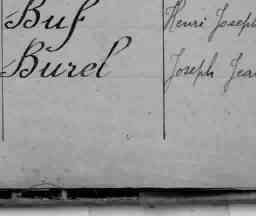 Buf Henri Joseph
Burel Joseph Jean